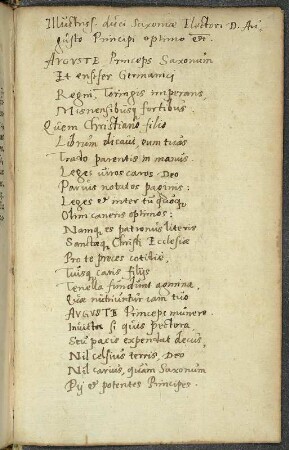 Illustriss. duci Saxoniæ Electori D. Au-
gusto Principi optimo etc.
AVGVSTE Princeps Saxonum
Et ensifer Germanici
Regni, Toringis imperans
Misnensibusq fortibus.
Quem Christiano filio
Librum dicavi, eum tuas
Trado parentis in manus.
Leges viros caros Deo
Parvis notatos paginis:
Leges et inter tu quoq
Olim caneris optimos:
Namq es patronus literis
Sanctæq Christi Ecclesiæ
Pro te preces cotidie,
Tuisq caris filijs
Tenella fundunt agmina.
Quæ nutriuntur iam tuo
AVGVSTE Princeps munere.
Invicta si quis pectora
Seu pacis expendat decus,
Nil celsius terris, Deo
Nil carius, quam Saxonum
Pij et potentes Principes.